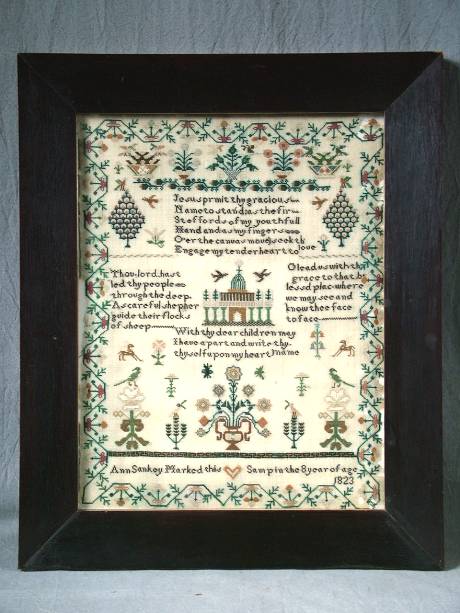 Jesus prmit thy gracious
Name to stand as the fir
St effords of my youthfull
Hand and as my fingers
O'er the canvas move seekth
Engage my tender heart to love
Thou lord hast
led thy people
through the deep.
As careful shepher
guide their flocks
of sheep
O lead us with thy
grace to that b
lessd plac where
we may see and
know thee face
to face
With thy dear children may
I have a part and write thy.
thyself upon my heart name
Ann Sankey Marked this Samp in the 8 year of age
1823